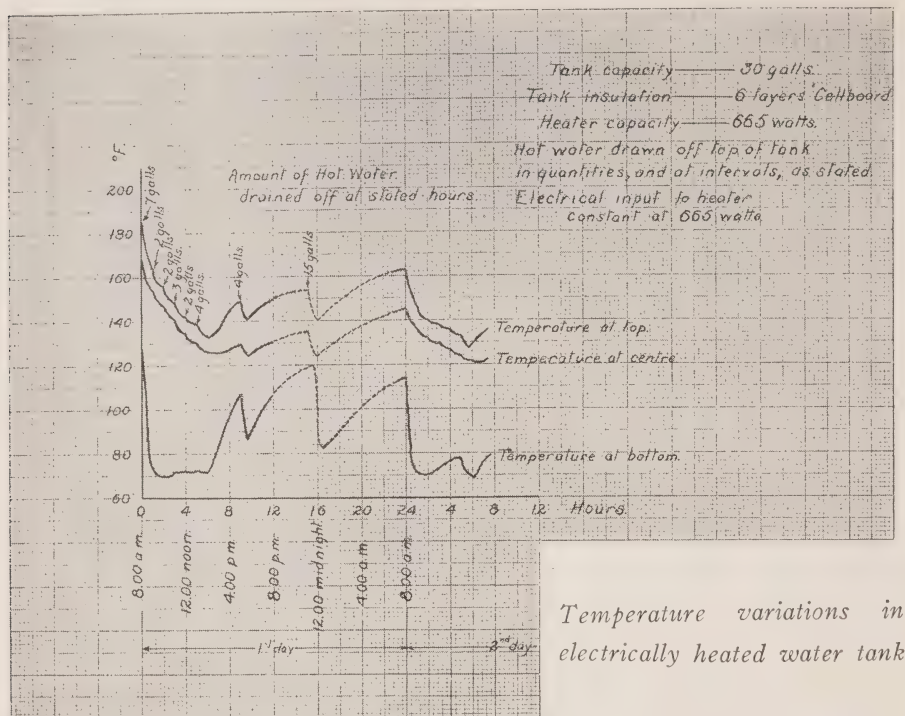 Tank capacity — 30 galls.
Tank insulation — 6 layers Cellboard
Heater capacity — 665 watts.
Hot water drawn off top of tank
in quantities, and at intervals, as stated.
Electrical input to heater
constant at 665 watts
Amount of Hot Water
drained off at stated hours.
°F.
200
180
160
140
120
100
80
60
7 galls
2 galls
2 galls
3 galls.
2 galls
4 galls.
4 galls.
15 galls
Temperature at top.
Temperature at centre
Temperature at bottom.
0 4 8 12 16 20 24 4 8 12 Hours.
8.00 a.m.
12.00 noon.
4.00 p.m.
8.00 p.m.
12.00 midnight.
4.00 a.m.
8.00 a.m.
1st day
2nd day
Temperature variations in
electrically heated water tank